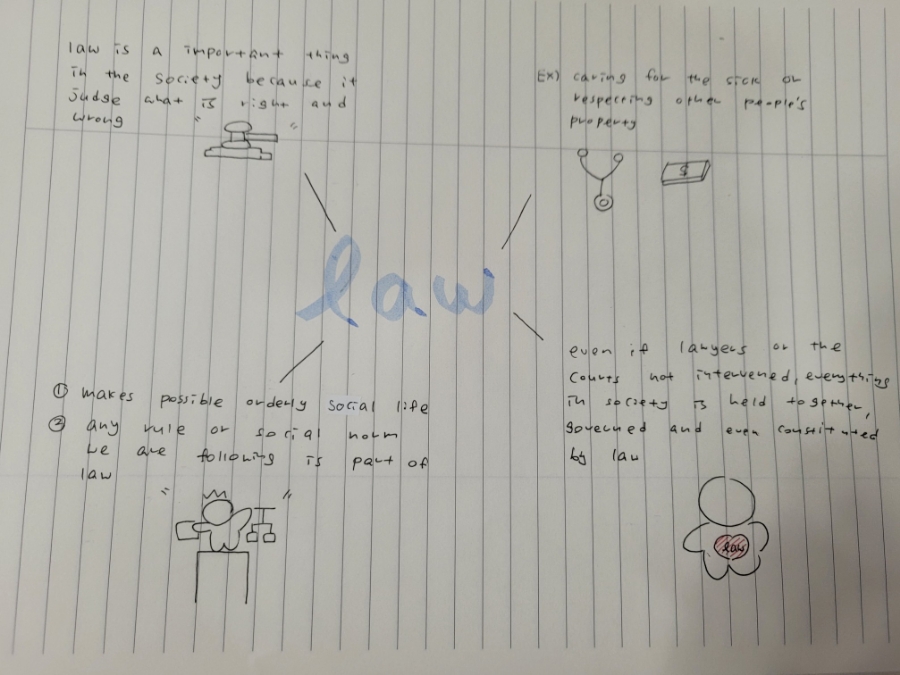 law is a important thing
in the society because it
judge what is right and
wrong
Ex) caring for the sick or
respecting other people's
property
$
law
① makes possible orderly social life
② any rule or social norm
we are following is part of
law
even if lawyers or the
courts not intervened, everything
in society is held together,
governed and even constituted
by law
law